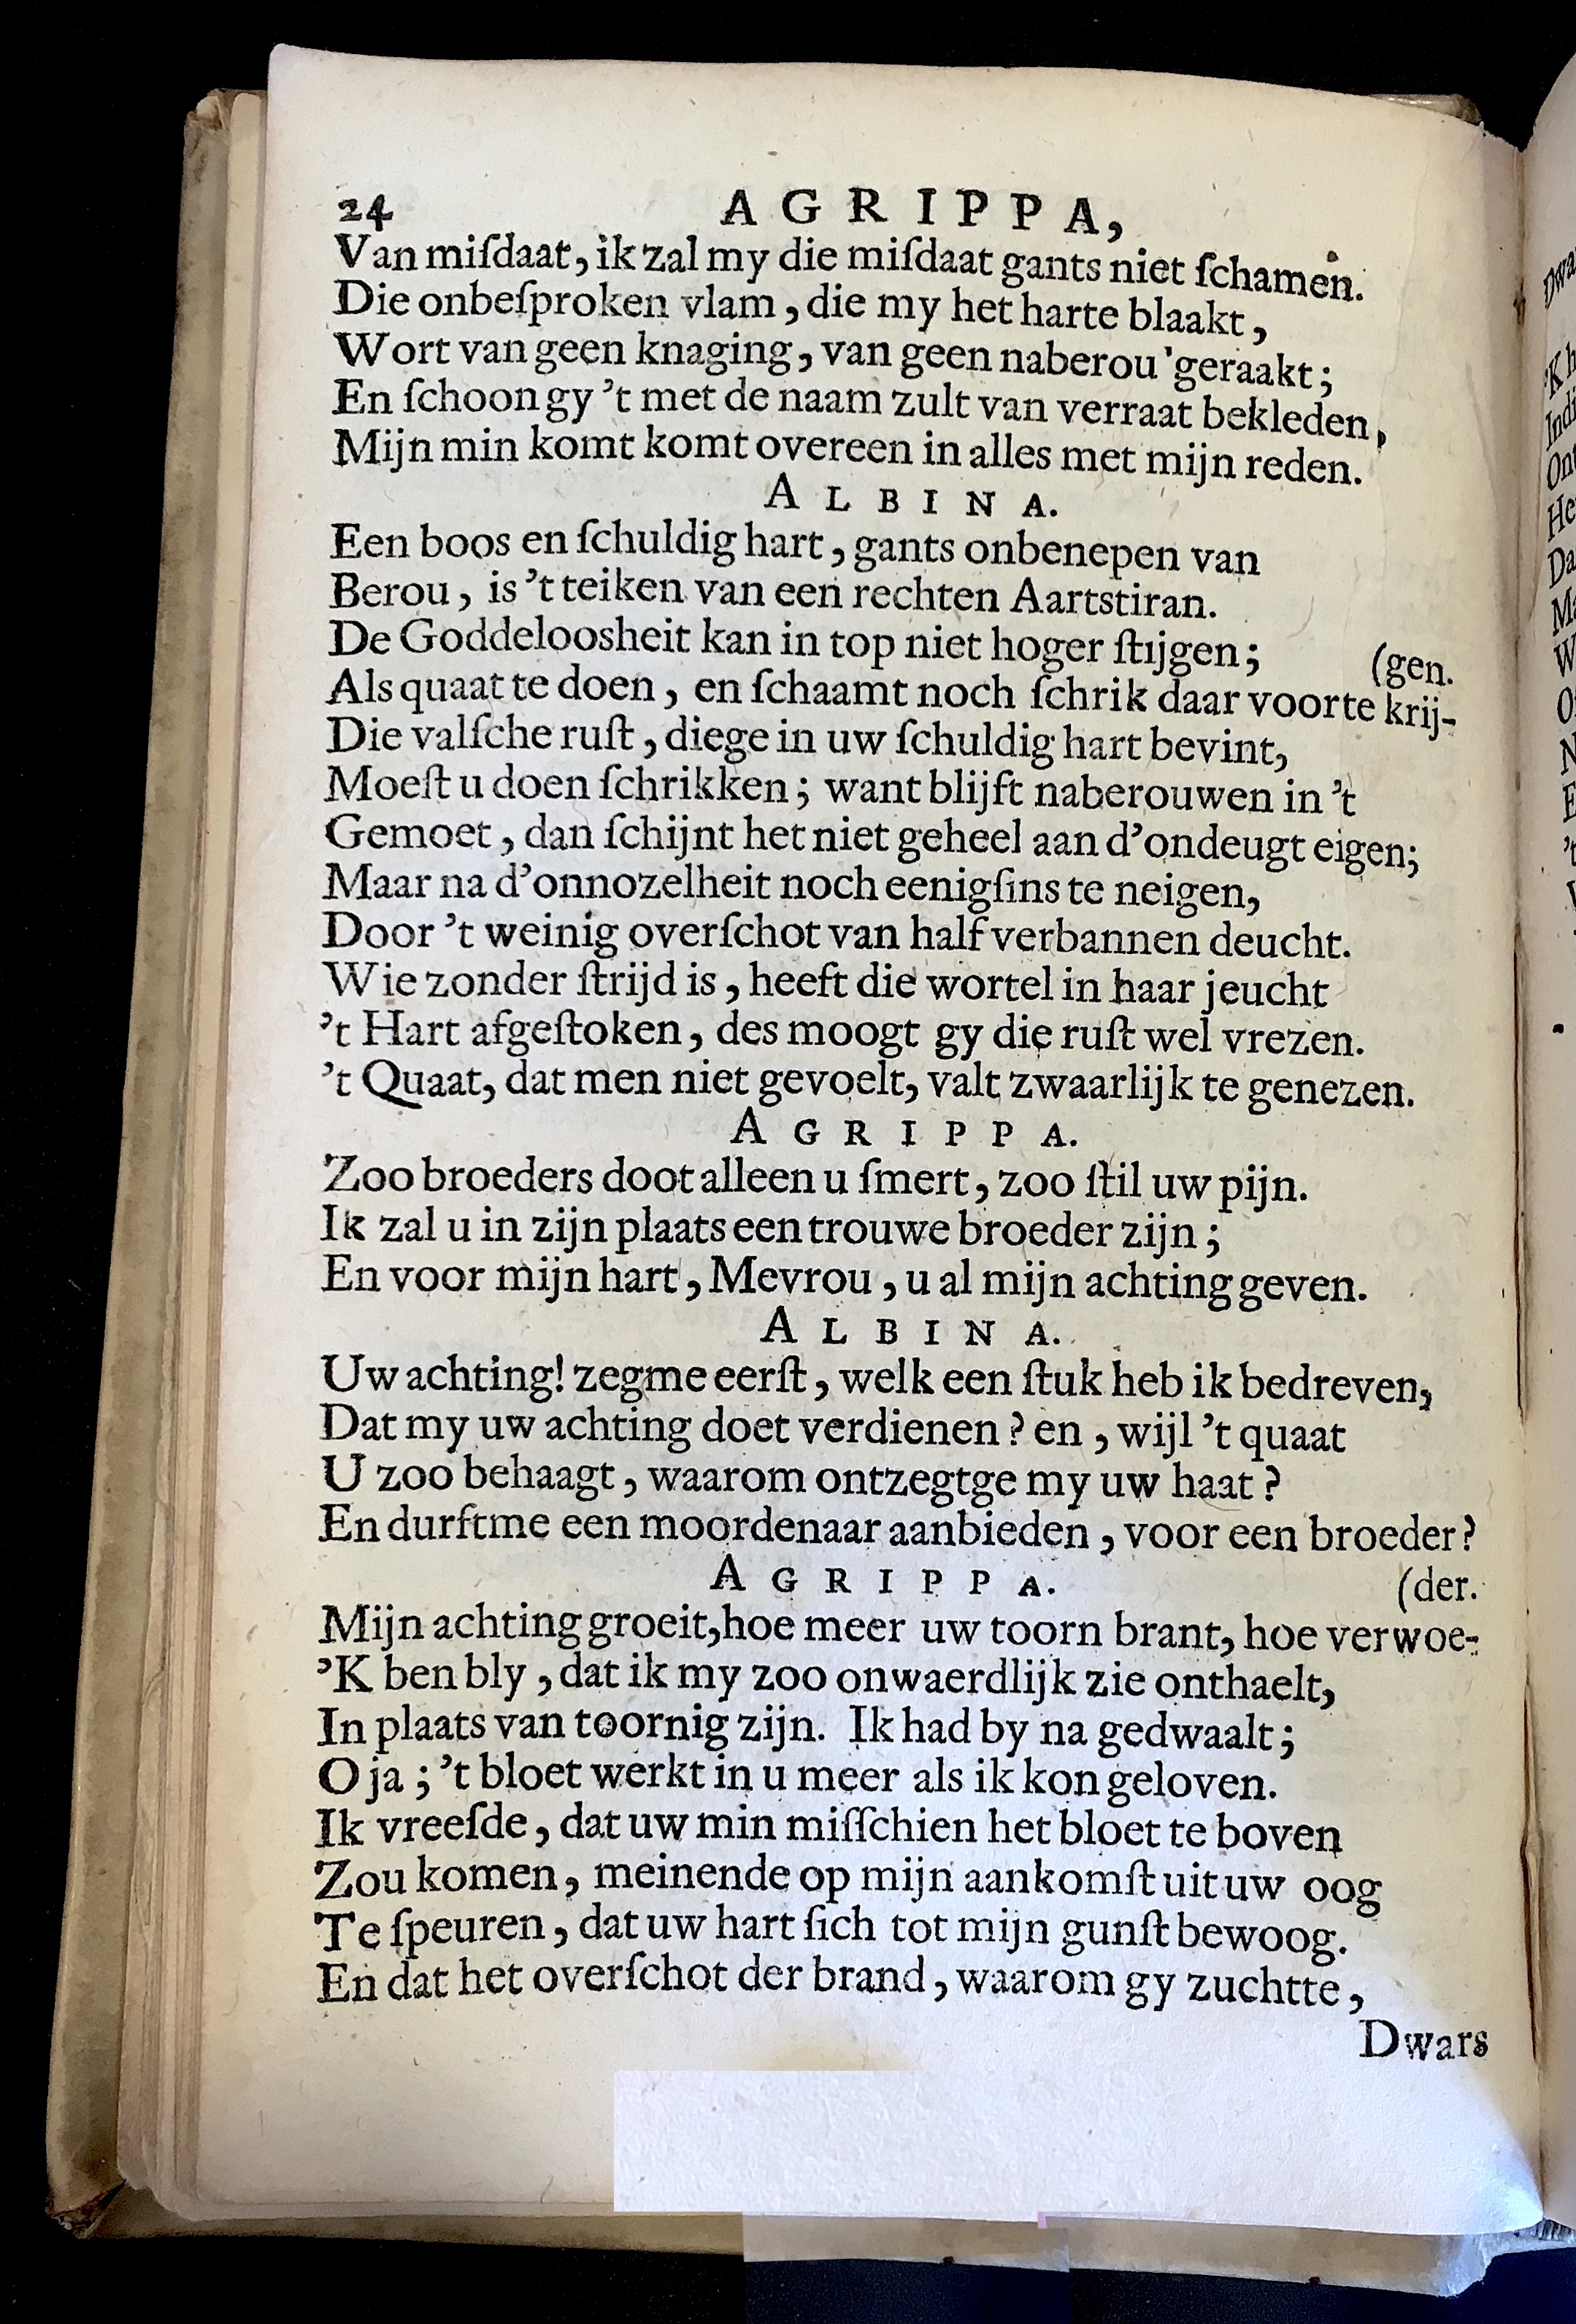 24 AGRIPPA,
Van miſdaat, ik zal my die miſdaat gants niet ſchamen.
Die onbeſproken vlam, die my het harte blaakt,
Wort van geen knaging, van geen naberou 'geraakt;
En ſchoon gy 't met de naam zult van verraat bekleden,
Mijn min komt komt overeen in alles met mijn reden.
ALBINA.
Een boos en ſchuldig hart, gants onbenepen van
Berou, is 't teiken van een rechten Aartstiran.
De Goddeloosheit kan in top niet hoger ſtijgen; (gen.
Als quaat te doen, en ſchaamt noch ſchrik daar voor te krij-
Die valſche ruſt, diege in uw ſchuldig hart bevint,
Moeſt u doen ſchrikken; want blijft naberouwen in 't
Gemoet, dan ſchijnt het niet geheel aan d'ondeugt eigen;
Maar na d'onnozelheit noch eenigſins te neigen,
Door 't weinig overſchot van half verbannen deucht.
Wie zonder ſtrijd is, heeft die wortel in haar jeucht
't Hart afgeſtoken, des moogt gy die ruſt wel vrezen.
't Quaat, dat men niet gevoelt, valt zwaarlijk te genezen.
AGRIPPA.
Zoo broeders doot alleen u ſmert, zoo ſtil uw pijn.
Ik zal u in zijn plaats een trouwe broeder zijn;
En voor mijn hart, Mevrou, u al mijn achting geven.
ALBINA.
Uw achting! zegme eerſt, welk een ſtuk heb ik bedreven,
Dat my uw achting doet verdienen? en, wijl 't quaat
U zoo behaagt, waarom ontzegtge my uw haat?
En durftme een moordenaar aanbieden, voor een broeder?
AGRIPPA. (der.
Mijn achting groeit, hoe meer uw toorn brant, hoe verwoe-
'K ben bly, dat ik my zoo onwaerdlijk zie onthaelt,
In plaats van toornig zijn. Ik had by na gedwaalt;
O ja; 't bloet werkt in u meer als ik kon geloven.
Ik vreeſde, dat uw min miſſchien het bloet te boven
Zou komen, meinende op mijn aankomſt uit uw oog
Te ſpeuren, dat uw hart ſich tot mijn gunſt bewoog.
En dat het overſchot der brand, waarom gy zuchtte,
Dwars